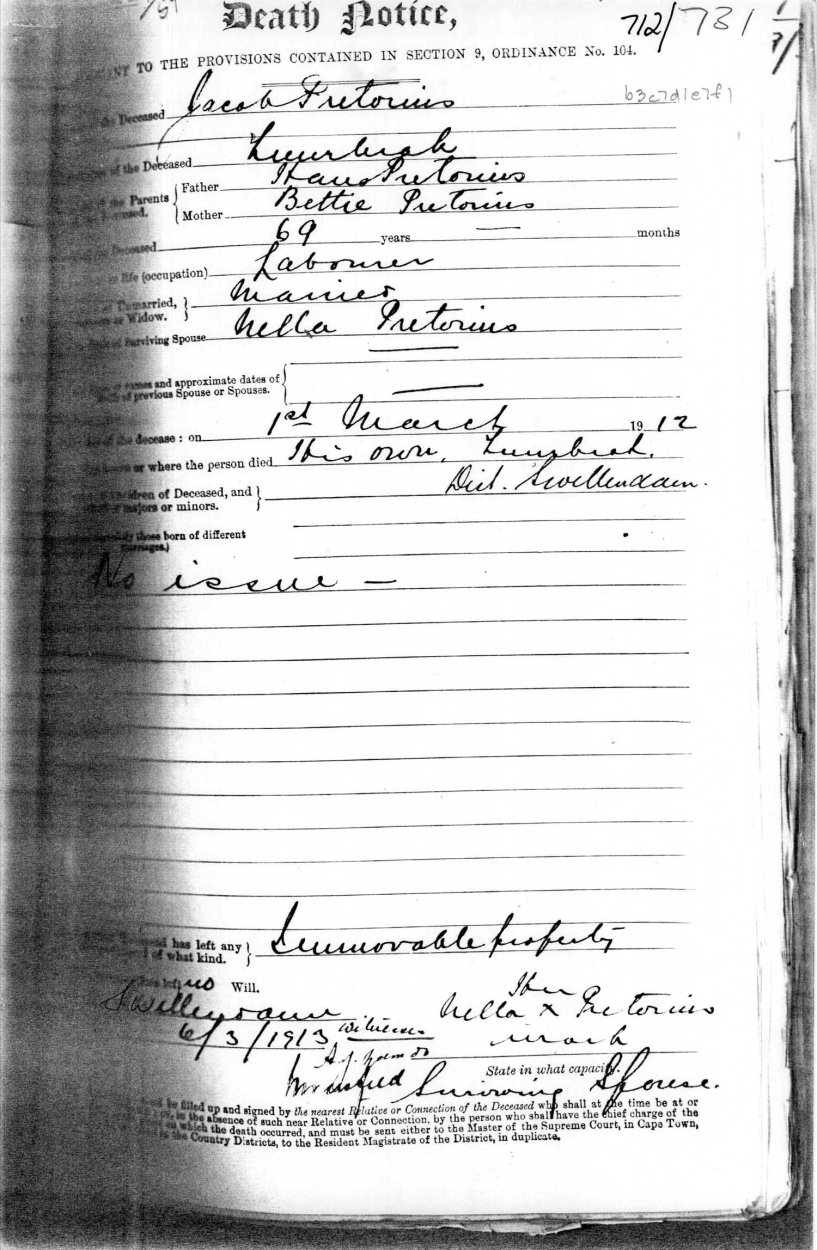 /51
Death Notice,
712/731
TO THE PROVISIONS CONTAINED IN SECTION 9, ORDINANCE No. 104.
b3c7d1e7f1
the Deceased Jacob Pretorius
of the Deceased Zuurbrak
the Parents Father Hans Pretorius
Mother Bettie Pretorius
Deceased 69 years — months
life (occupation) Labourer
Unmarried, Married
or Widow.
Surviving Spouse Nella Pretorius
names and approximate dates of
previous Spouse or Spouses. —
the decease: on 1st March 1912
or where the person died His own, Zuurbrak.
Children of Deceased, and Dist. Swellendam.
majors or minors.
those born of different
marriages.)
No issue —
has left any Immovable property
of what kind.
has left no Will.
Swellendam
Her
Nella x Pretorius
mark
6/3/1913 witness
State in what capacity.
Surviving Spouse.
be filled up and signed by the nearest Relative or Connection of the Deceased who shall at the time be at or
in the absence of such near Relative or Connection, by the person who shall have the chief charge of the
which the death occurred, and must be sent either to the Master of the Supreme Court, in Cape Town,
the Country Districts, to the Resident Magistrate of the District, in duplicate.